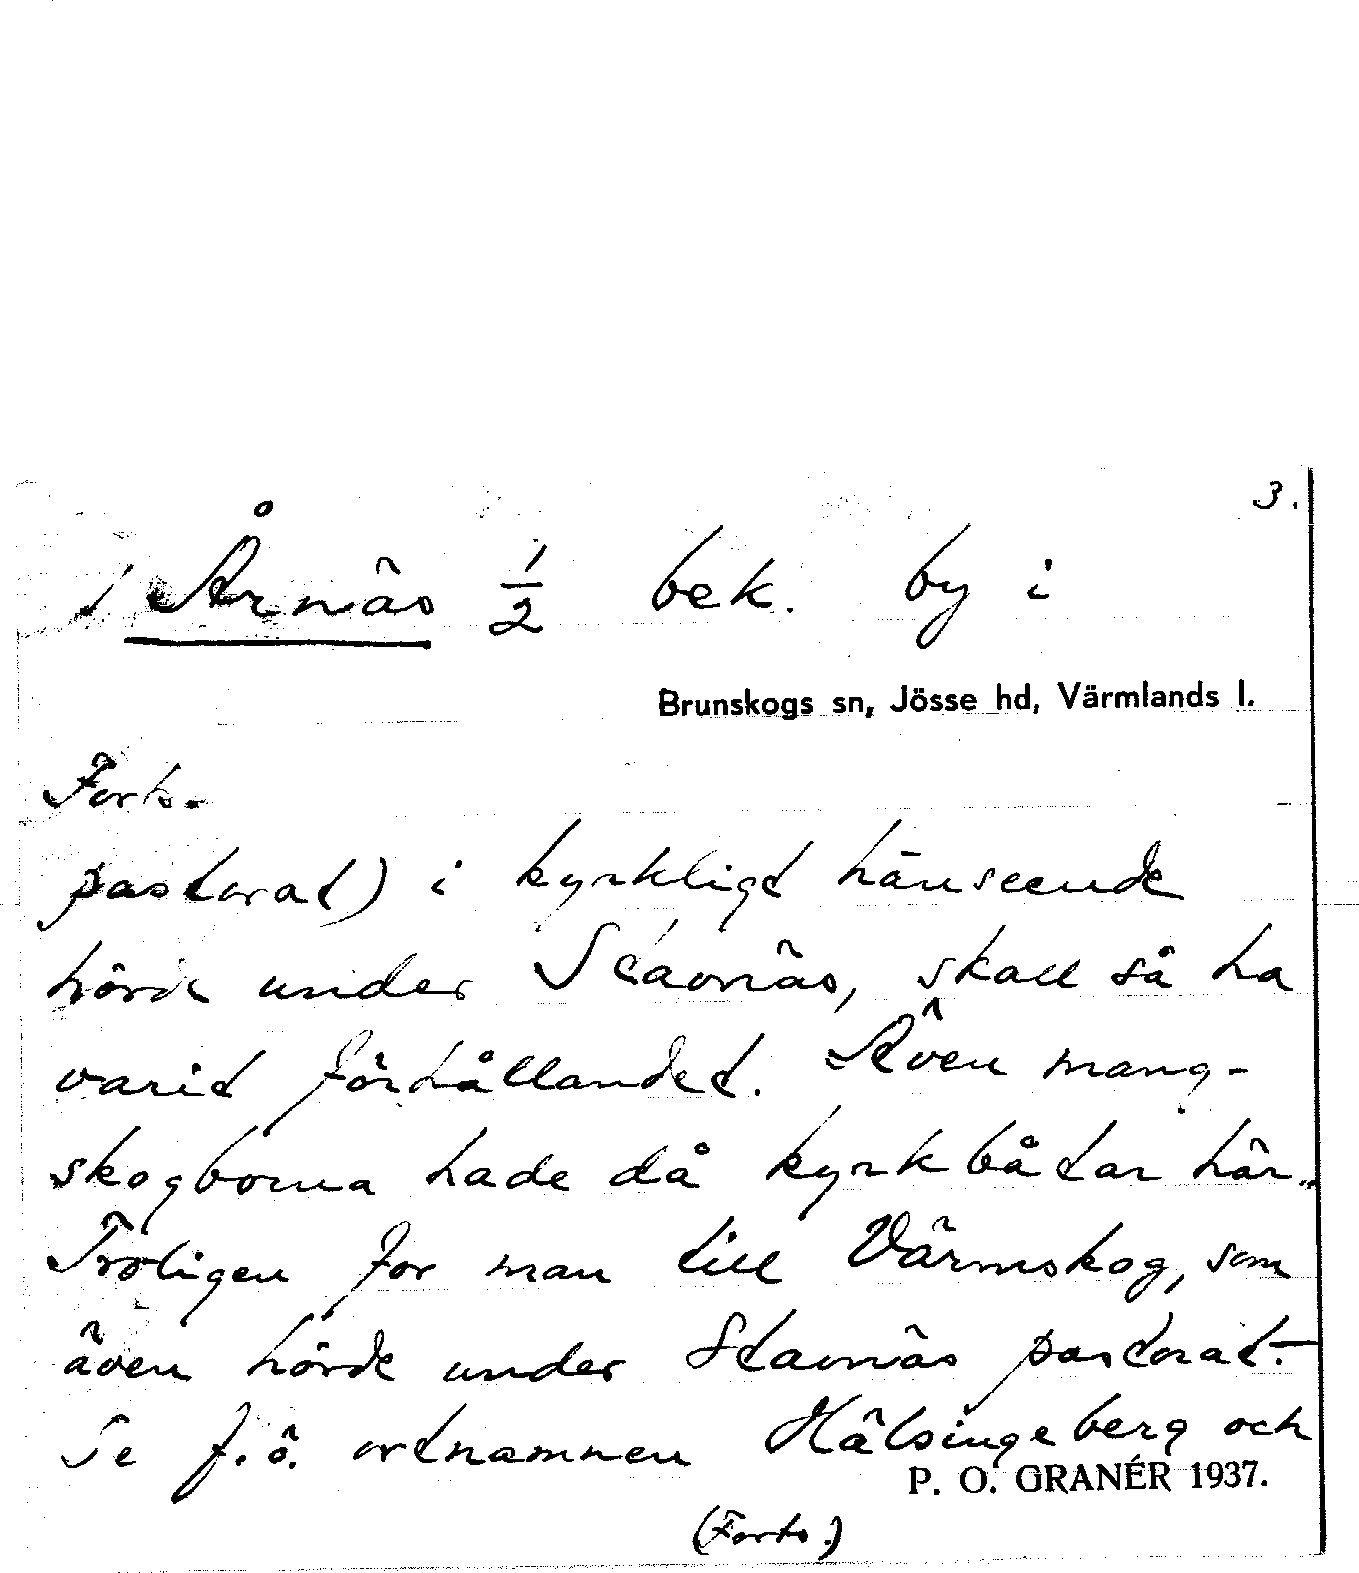 3.
Årnäs 1/2 bek. by i
Brunskogs sn, Jösse hd, Värmlands l.
Forts.
pastorat) i kyrkligt hänseende
hörde under Stavnäs, skall så ha
varit förhållandet. Även mang-
skogborna hade då kyrkbåtar här.
Troligen for man till Värmskog, som
även hörde under Stavnäs pastorat.-
Se f.ö. ortnamnen Hälsingeberg och
P. O. GRANÉR 1937.
(Forts.)